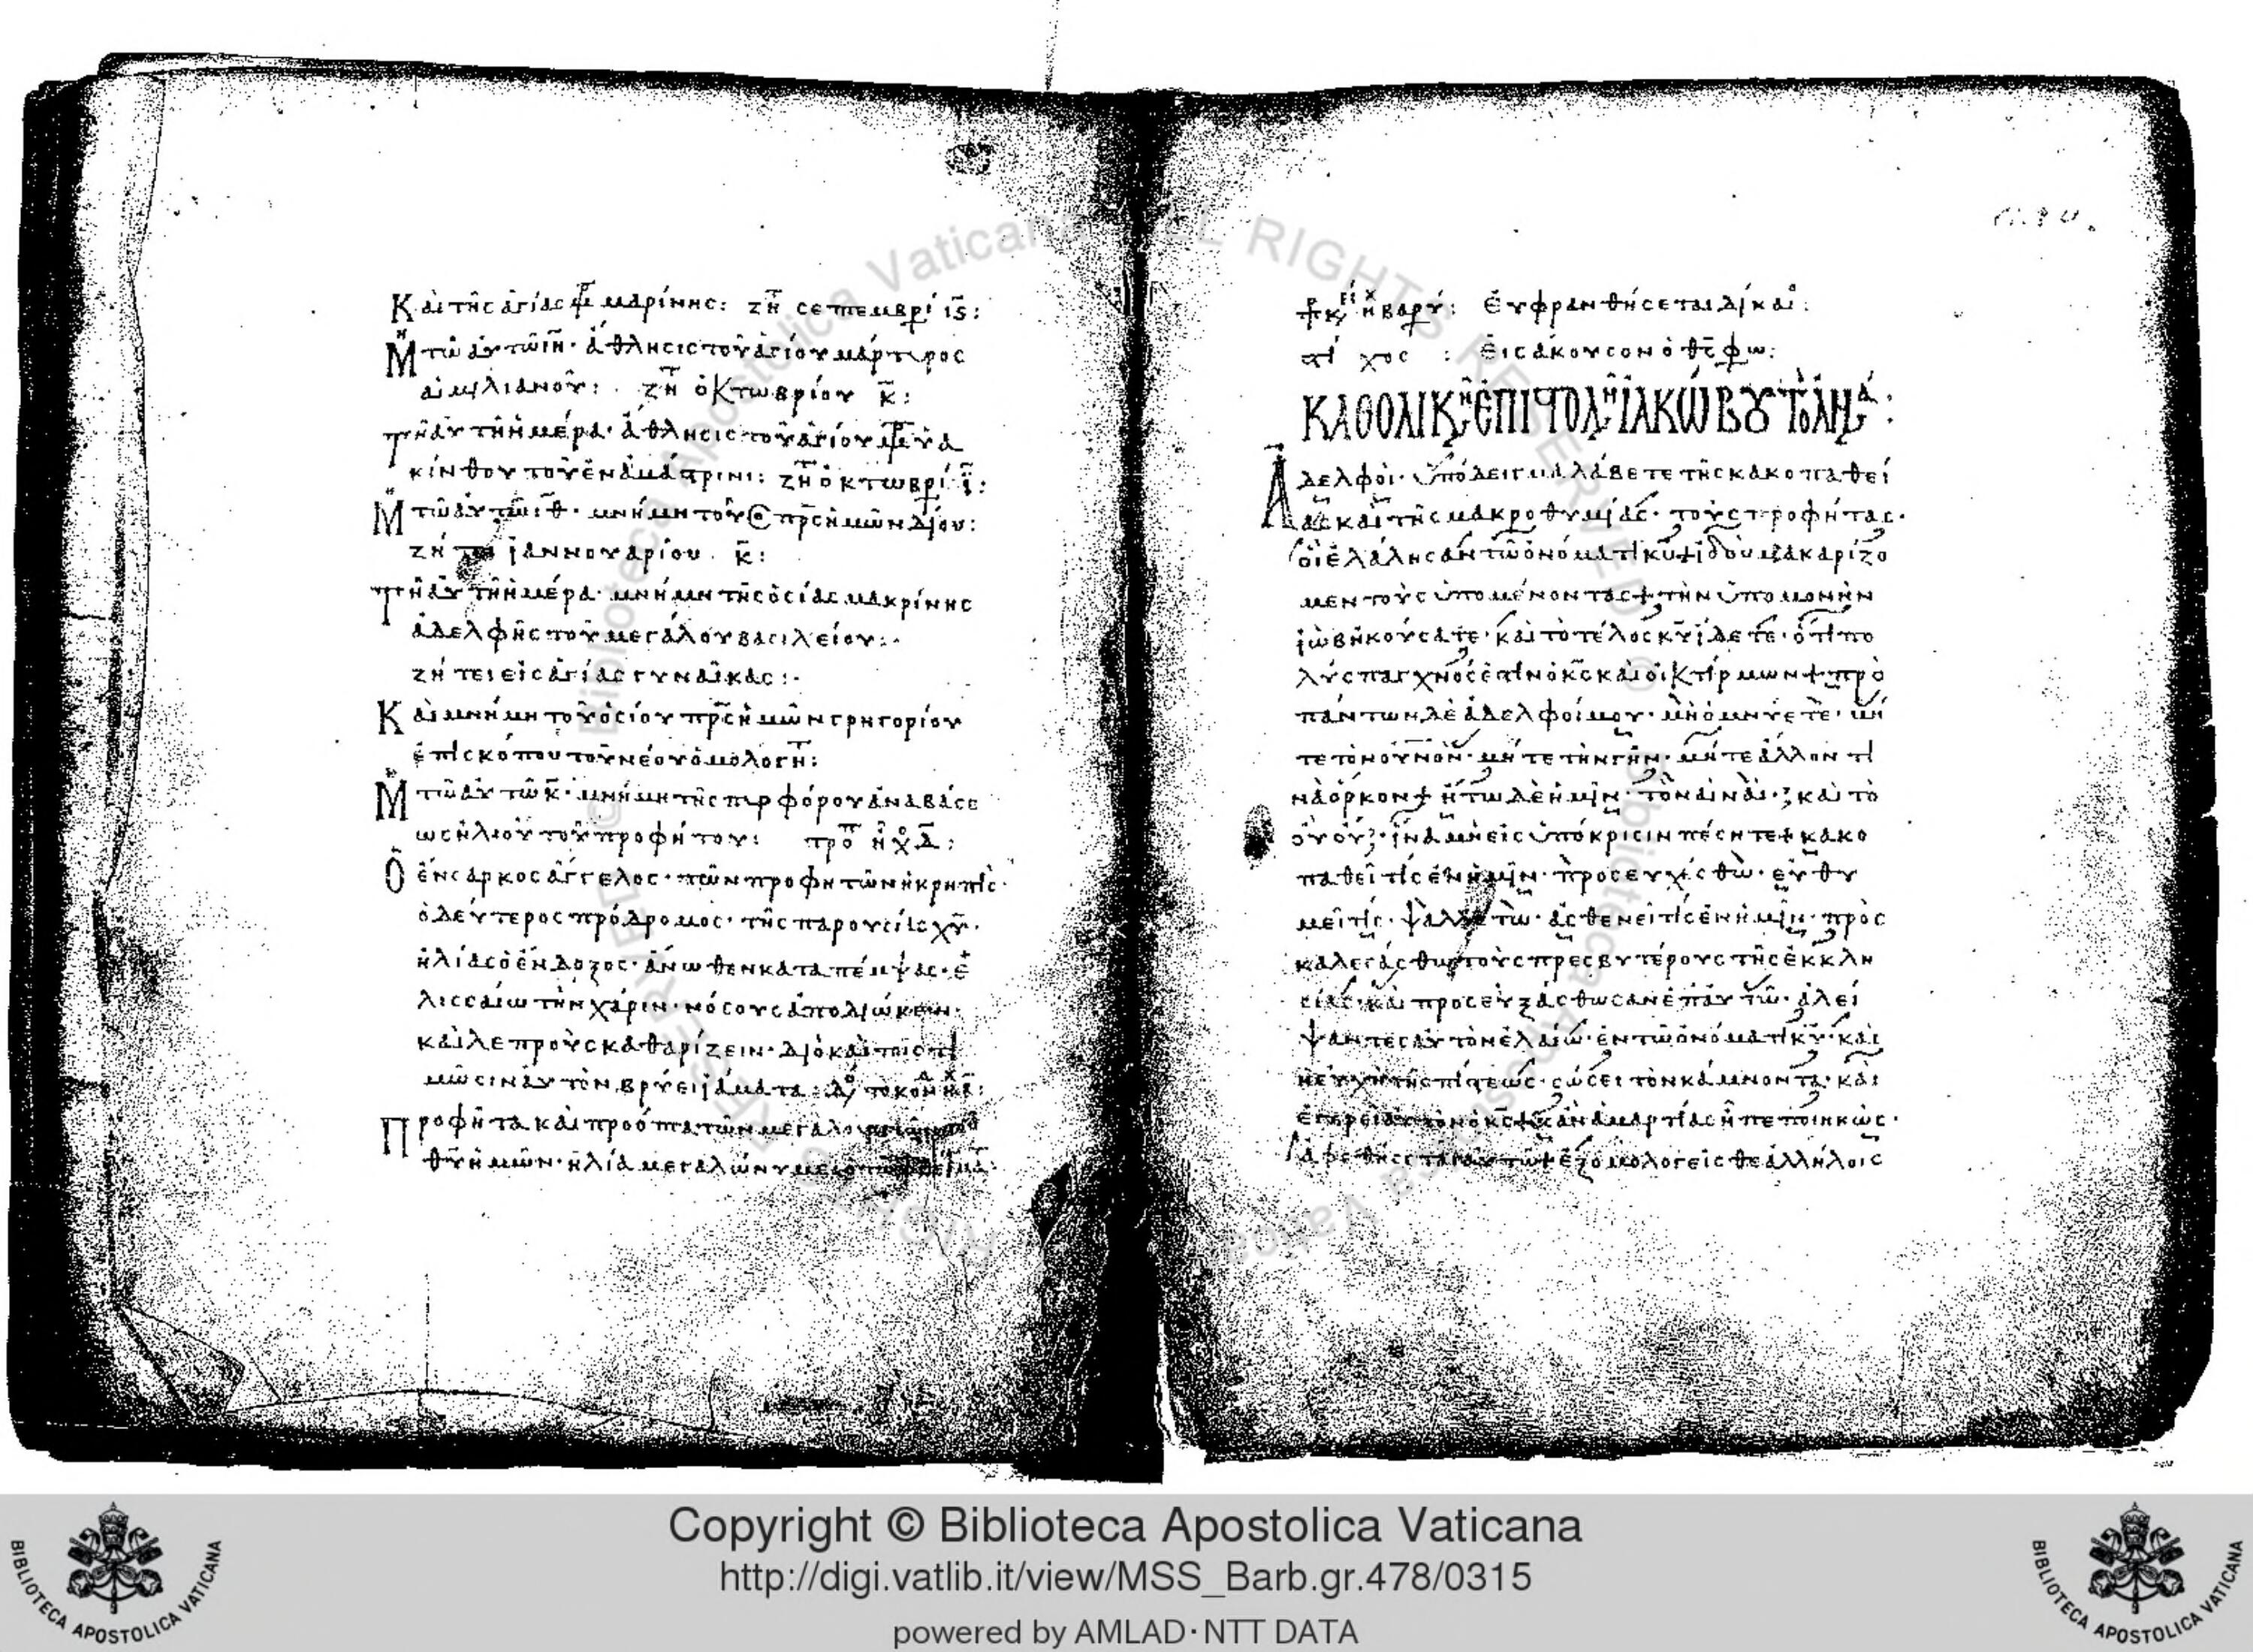 Καὶ τῆς ἁγίας μρ μαρίνης: ζη σεπτεμβρί ις:
Μη τῶ αὐτῶ ιη· ἄθλησις τοῦ ἁγίου μάρτυρος
αἰμιλιανοῦ: ζητ ὀκτωβρίου κ:
τῆ αὐτῆ ἡμέρα· ἄθλησις τοῦ ἁγίου μρ ὑα
κίνθου τοῦ ἐν ἀμάστρινι: ζητ ὀκτωβρί ι:
Μη τῶ αὐτῶ ιθ· μνήμη τοῦ πρς ἡμῶν δίου:
ζή ἰαννουαρίου κ:
τῆ αὐτῆ ἡμέρα· μνήμη τῆς ὁσίας μακρίνης
ἀδελφῆς τοῦ μεγάλου βασιλείου:
ζήτει εἰς ἁγίας γυναῖκας:
Καὶ μνήμη τοῦ ὁσίου πρς ἡμῶν γρηγορίου
ἐπισκόπου τοῦ νέου ὁμολογητ:
Μη τῶ αὐτῶ κ· μνήμη τῆς πυρφόρου ἀναβάσε
ως ἡλιοὺ τοῦ προφήτου: προ ηχ δ:
Ὁ ἔνσαρκος ἄγγελος· τῶν προφητῶν ἡ κρηπίς·
ὁ δεύτερος πρόδρομος· τῆς παρουσίας χυ·
ἡλίας ὁ ἔνδοξος· ἄνωθεν καταπέμψας· ἐ
λισσαίω τὴν χάριν· νόσους ἀποδιώκειν·
καὶ λεπροὺς καθαρίζειν· διὸ καὶ τοῖς τι
μῶσιν αὐτὸν βρύει ἰάματα:
Προφῆτα καὶ προόπτα τῶν μεγαλουργιῶν τοῦ
θυ ἡμῶν· ἡλία μεγαλώνυμε
εὐφρανθήσεται δίκαι:
στίχος : εἰσάκουσον ὁ θς φω:
ΚΑΘΟΛΙΚ ΕΠΙΣΤΟΛ ΙΑΚΩΒΟΥ
Ἀδελφοὶ· ὑπόδειγμα λάβετε τῆς κακοπαθεί
ας καὶ τῆς μακροθυμίας· τοὺς προφήτας·
οἳ ἐλάλησαν τῶ ὀνόματι κυ + ἰδοὺ μακαρίζο
μεν τοὺς ὑπομένοντας + τὴν ὑπομονὴν
ἰὼβ ἠκούσατε· καὶ τὸ τέλος κυ ἴδετε· ὅτι πο
λύσπαγχνός ἐστιν ὁ κς καὶ οἰκτίρμων + πρὸ
πάντων δὲ ἀδελφοί μου· μὴ ὀμνύετε· μή
τε τὸν οὐνὸν· μήτε τὴν γῆν· μήτε ἄλλον τι
νὰ ὅρκον + ἤτω δὲ ἡμῖν· τὸ ναὶ ναὶ· καὶ τὸ
οὐ οὔ· ἵνα μὴ εἰς ὑπόκρισιν πέσητε + κακο
παθεῖ τίς ἐν ἡμῖν· προσευχέσθω· εὐθυ
μεῖ τίς· ψαλλέτω· ἀσθενεῖ τίς ἐν ἡμῖν· προσ
καλεσάσθω τοὺς πρεσβυτέρους τῆς ἐκκλη
σίας· καὶ προσευξάσθωσαν ἐπ αὐτῶ· ἀλεί
ψαντες αὐτὸν ἐλαίω· ἐν τῶ ὀνόματι κυ· καὶ
ἡ εὐχὴ τῆς πίστεως· σώσει τὸν κάμνοντα· καὶ
ἐγερεῖ αὐτὸν ὁ κς + κἂν ἁμαρτίας ἦ πεποιηκώς·
ἀφεθήσεται αὐτῶ + ἐξομολογεῖσθε ἀλλήλοις
Copyright © Biblioteca Apostolica Vaticana
http://digi.vatlib.it/view/MSS_Barb.gr.478/0315
powered by AMLAD·NTT DATA
BIBLIOTECA APOSTOLICA VATICANA
BIBLIOTECA APOSTOLICA VATICANA